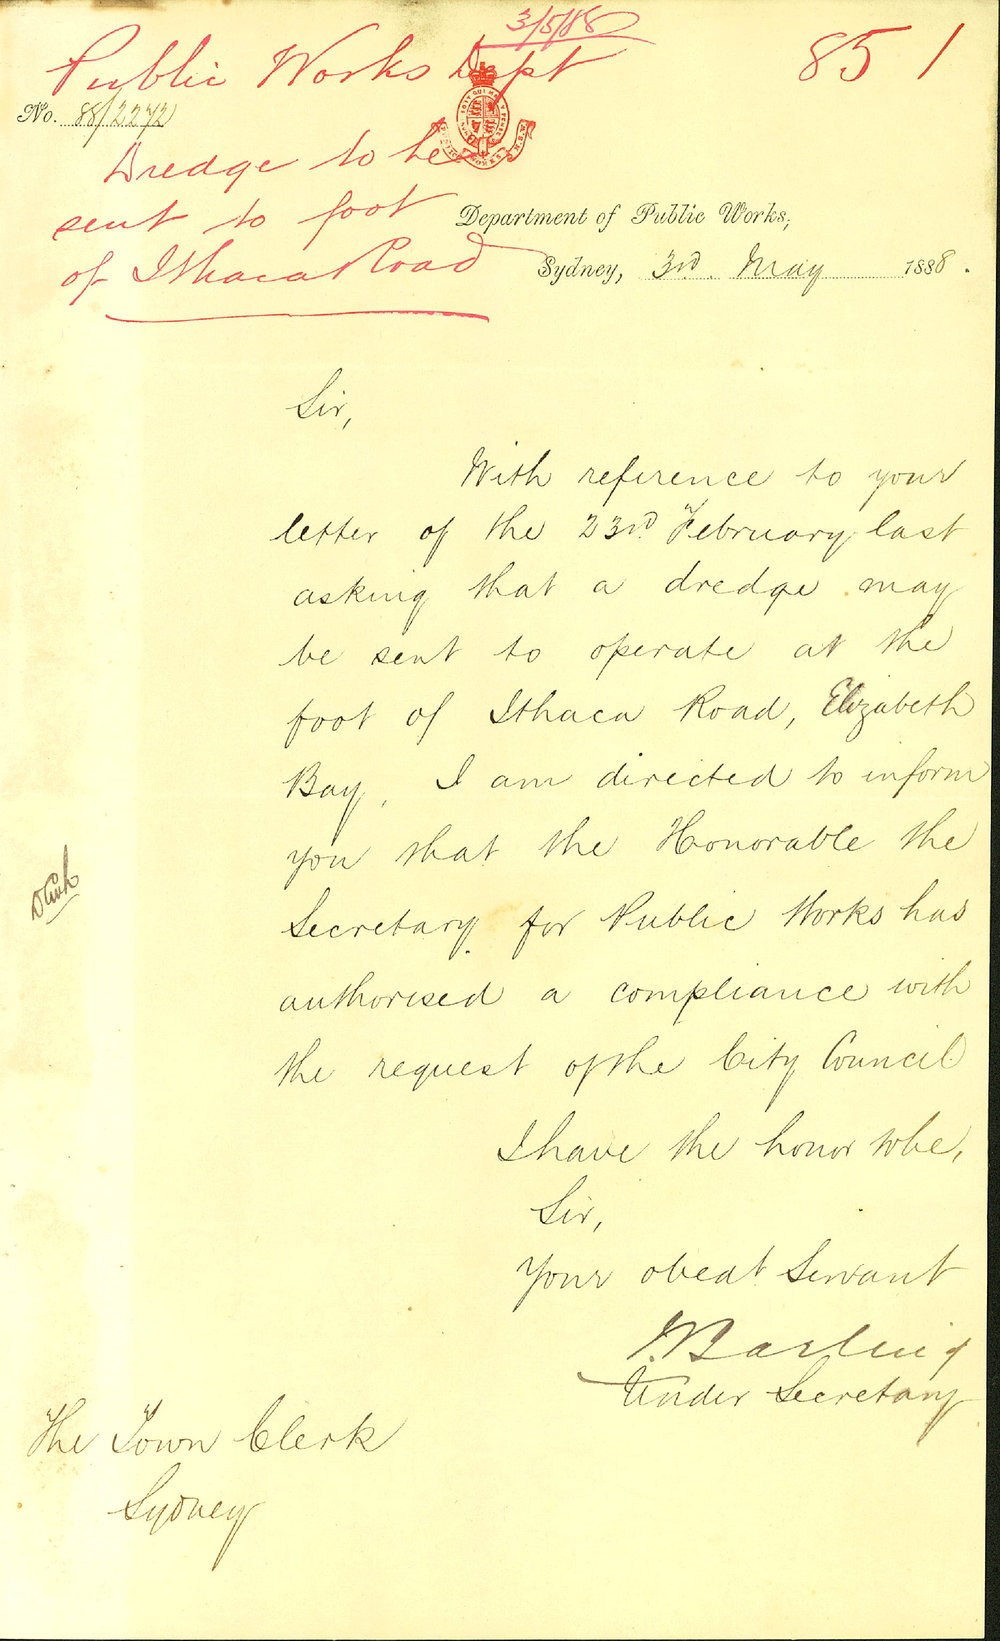 3/5/88
Public Works Dept
851
No. 88/2272
Dredge to be
sent to foot
of Ithaca Road
Department of Public Works,
Sydney, 3rd. May 1888.
Sir,
With reference to your
letter of the 23rd February last
asking that a dredge may
be sent to operate at the
foot of Ithaca Road, Elizabeth
Bay, I am directed to inform
you that the Honorable the
Secretary for Public Works has
authorised a compliance with
the request of the City Council
I have the honor to be,
Sir,
Your obedt Servant
J. Barling
Under Secretary
The Town Clerk
Sydney